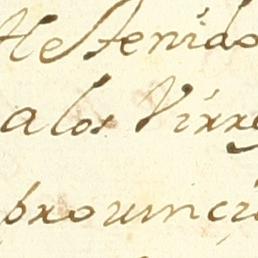 He tenido
a los Virre
prouincia